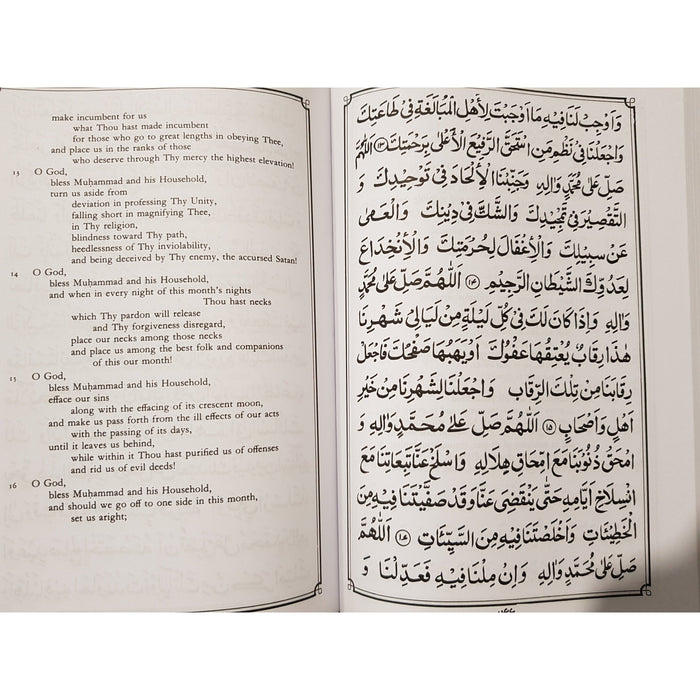 make incumbent for us
what Thou hast made incumbent
for those who go to great lengths in obeying Thee,
and place us in the ranks of those
who deserve through Thy mercy the highest elevation!
13 O God,
bless Muḥammad and his Household,
turn us aside from
deviation in professing Thy Unity,
falling short in magnifying Thee,
in Thy religion,
blindness toward Thy path,
heedlessness of Thy inviolability,
and being deceived by Thy enemy, the accursed Satan!
14 O God,
bless Muḥammad and his Household,
and when in every night of this month's nights
Thou hast necks
which Thy pardon will release
and Thy forgiveness disregard,
place our necks among those necks
and place us among the best folk and companions
of this our month!
15 O God,
bless Muḥammad and his Household,
efface our sins
along with the effacing of its crescent moon,
and make us pass forth from the ill effects of our acts
with the passing of its days,
until it leaves us behind,
while within it Thou hast purified us of offenses
and rid us of evil deeds!
16 O God,
bless Muḥammad and his Household,
and should we go off to one side in this month,
set us aright;
وَاَوْجِبْ لَنَا فِيهِ مَا اَوْجَبْتَ لِاَهْلِ الْمُبَالَغَةِ فِى طَاعَتِكَ
وَاجْعَلْنَا فِى نَظْمِ مَنِ اسْتَحَقَّ الرَّفِيعَ الْاَعْلٰى بِرَحْمَتِكَ ﴿۱۳﴾ اَللّٰهُمَّ
صَلِّ عَلٰى مُحَمَّدٍ وَاٰلِهِ وَجَنِّبْنَا الْاِلْحَادَ فِى تَوْحِيدِكَ وَ
التَّقْصِيرَ فِى تَمْجِيدِكَ وَالشَّكَّ فِى دِينِكَ وَالْعَمٰى
عَنْ سَبِيلِكَ وَالْاِغْفَالَ لِحُرْمَتِكَ وَالْاِنْخِدَاعَ
لِعَدُوِّكَ الشَّيْطَانِ الرَّجِيمِ ﴿۱۴﴾ اَللّٰهُمَّ صَلِّ عَلٰى مُحَمَّدٍ
وَاٰلِهِ وَاِذَا كَانَ لَكَ فِى كُلِّ لَيْلَةٍ مِنْ لَيَالِى شَهْرِنَا
هٰذَا رِقَابٌ يُعْتِقُهَا عَفْوُكَ اَوْ يَهَبُهَا صَفْحُكَ فَاجْعَلْ
رِقَابَنَا مِنْ تِلْكَ الرِّقَابِ وَاجْعَلْنَا لِشَهْرِنَا مِنْ خَيْرِ
اَهْلٍ وَاَصْحَابٍ ﴿۱۵﴾ اَللّٰهُمَّ صَلِّ عَلٰى مُحَمَّدٍ وَاٰلِهِ وَ
امْحَقْ ذُنُوبَنَا مَعَ امِّحَاقِ هِلَالِهِ وَاسْلَخْ عَنَّا تَبِعَاتِنَا مَعَ
انْسِلَاخِ اَيَّامِهِ حَتّٰى يَنْقَضِىَ عَنَّا وَقَدْ صَفَّيْتَنَا فِيهِ مِنَ
الْخَطِيْئَاتِ وَاَخْلَصْتَنَا فِيهِ مِنَ السَّيِّئَاتِ اَللّٰهُمَّ
صَلِّ عَلٰى مُحَمَّدٍ وَاٰلِهِ وَاِنْ مِلْنَا فِيهِ فَعَدِّلْنَا وَ